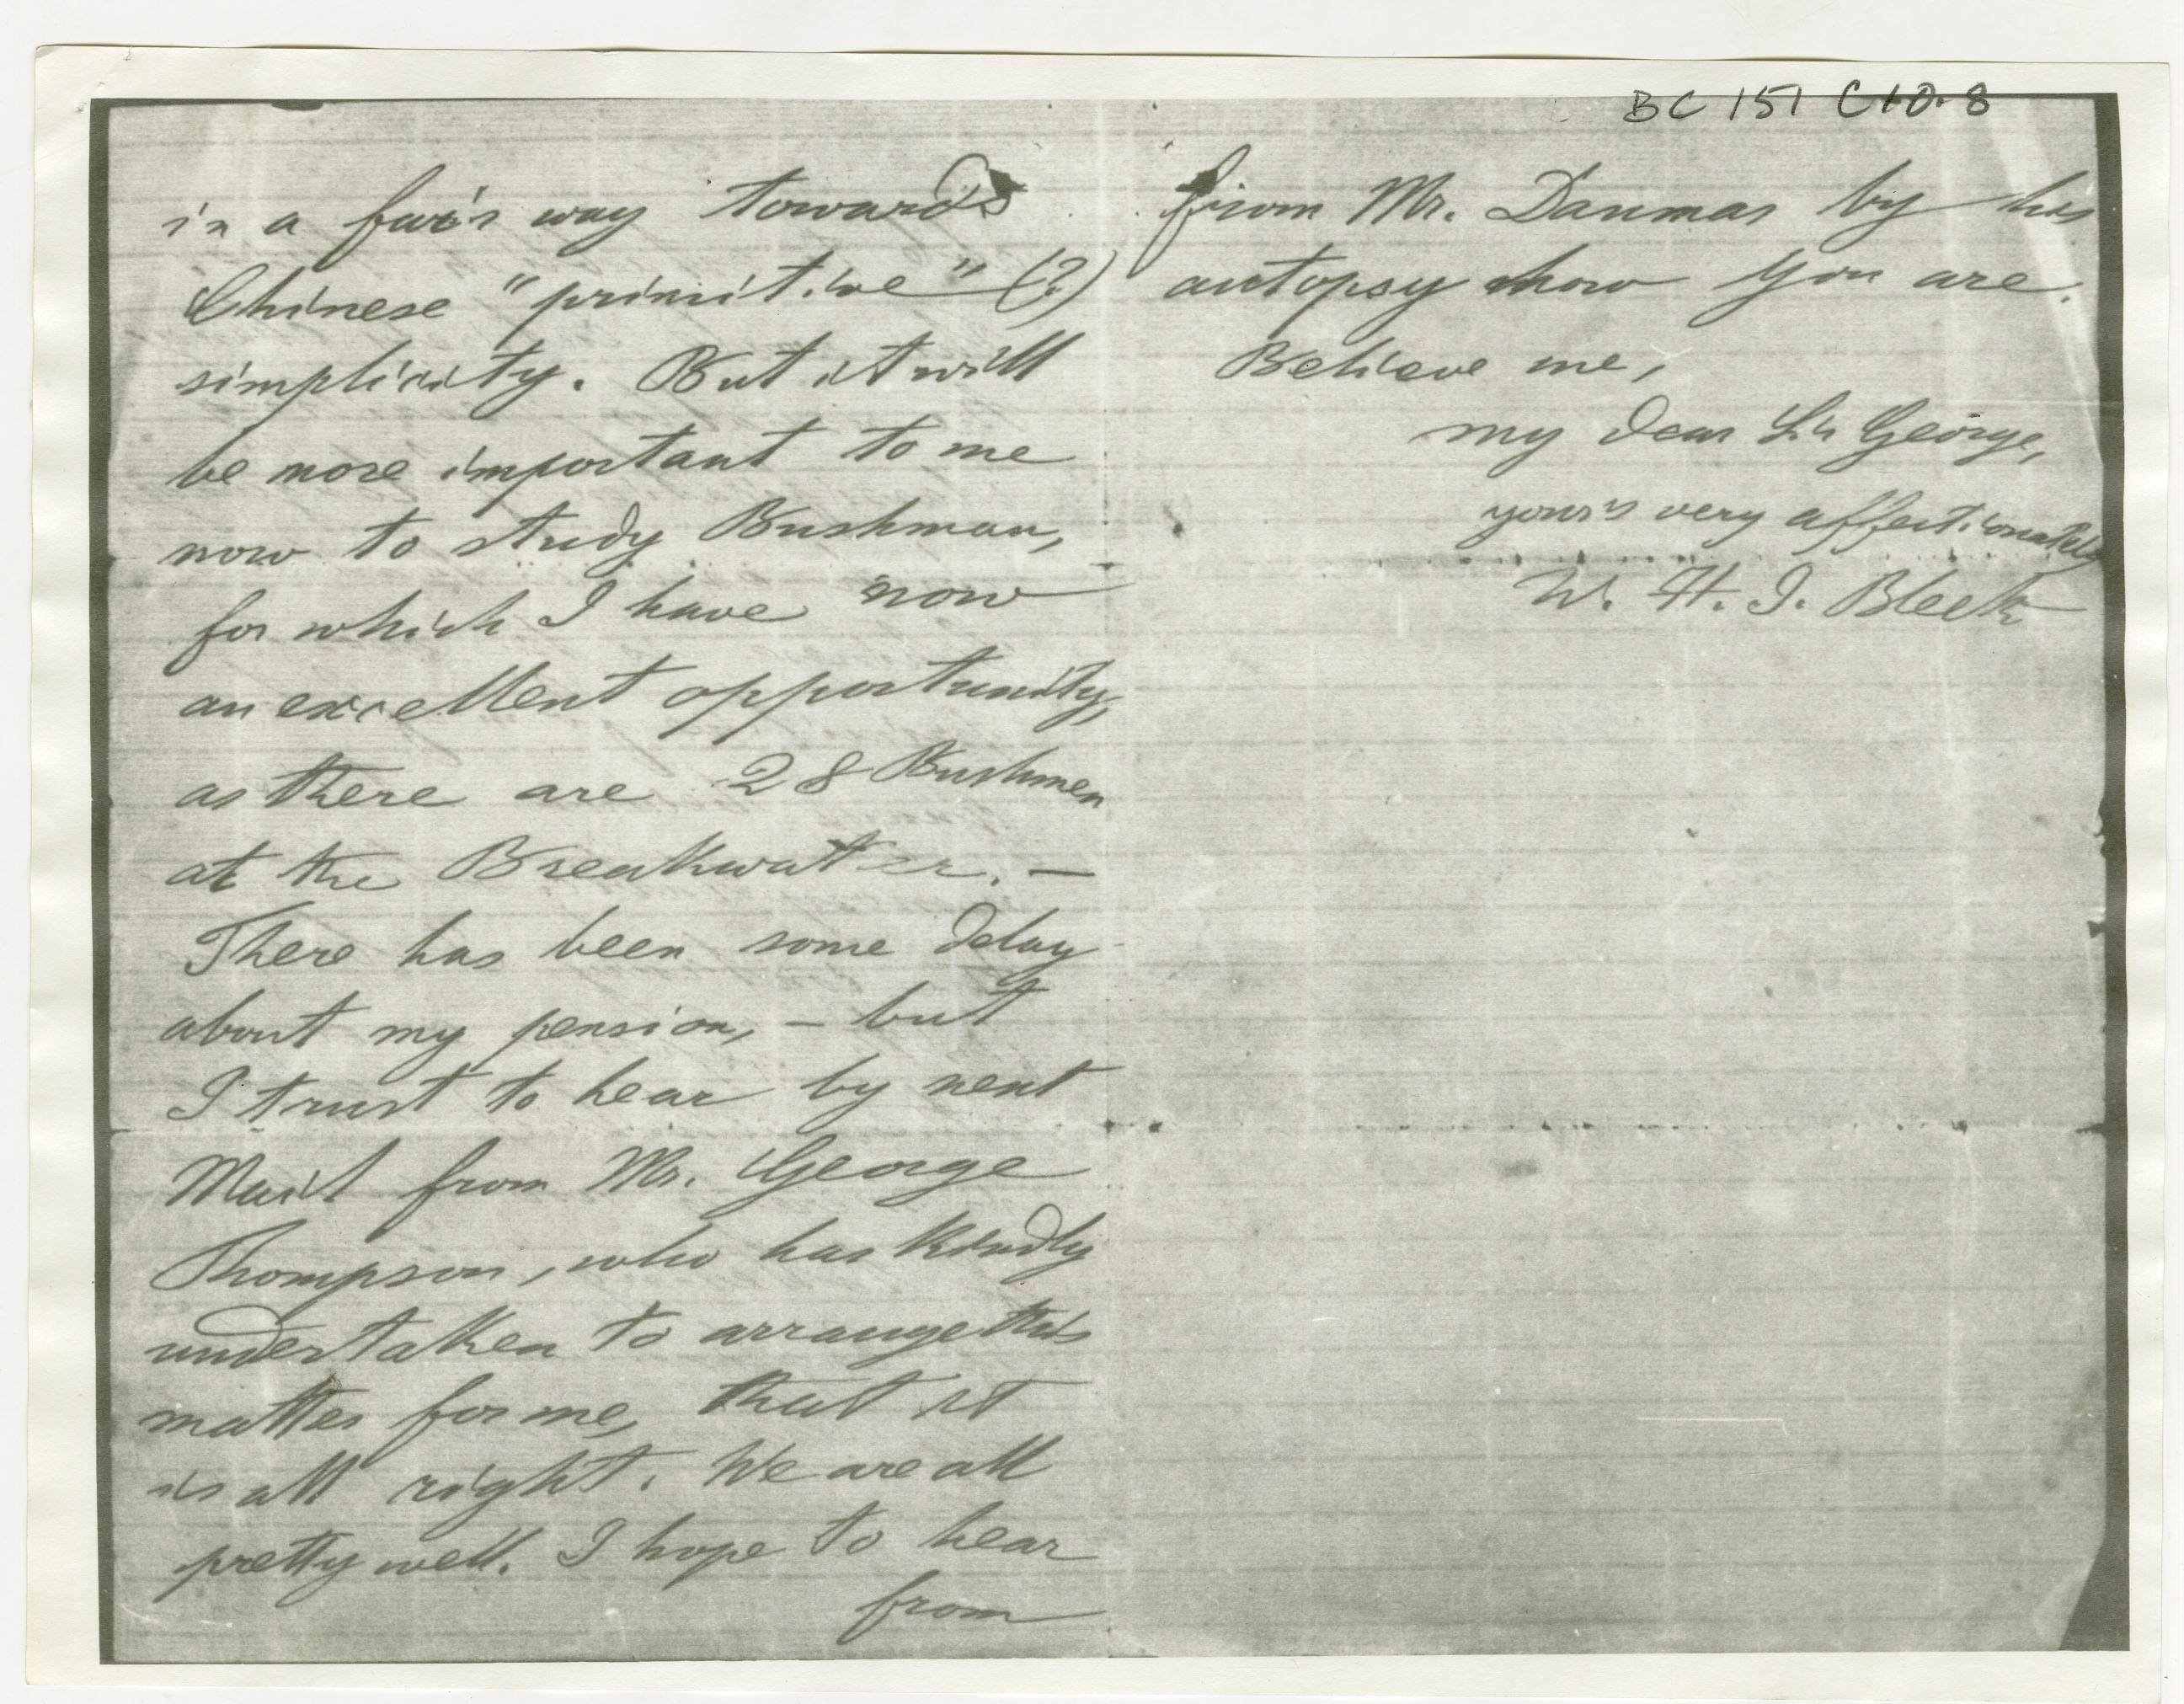 BC 151 C10.8
in a fair way towards
Chinese "primitive" (?)
simplicity. But it will
be more important to me
now to study Bushman,
for which I have now
an excellent opportunity,
as there are 28 Bushmen
at the Breakwater. —
There has been some delay
about my pension, — but
I trust to hear by next
Mail from Mr. George
Thompson, who has kindly
undertaken to arrange this
matter for me, that it
is all right. We are all
pretty well. I hope to hear
from
from Mr. Daumas by his
autopsy how you are.
Believe me,
my dear Sir George,
yours very affectionately
W. H. I. Bleek